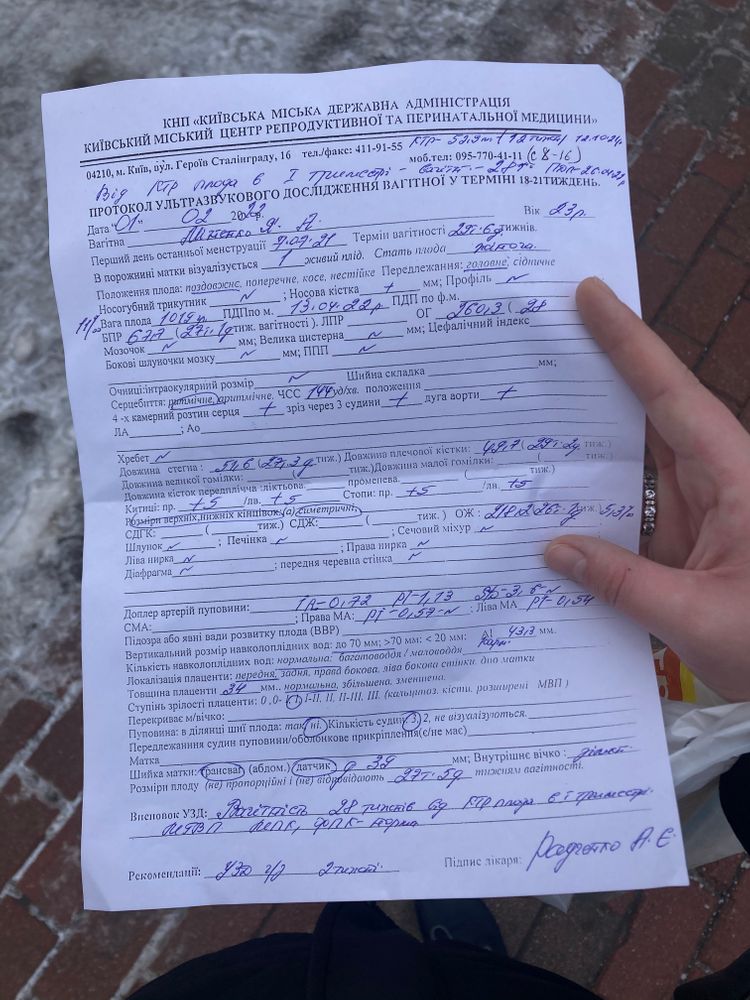 КНП «КИЇВСЬКА МІСЬКА ДЕРЖАВНА АДМІНІСТРАЦІЯ
КИЇВСЬКИЙ МІСЬКИЙ ЦЕНТР РЕПРОДУКТИВНОЇ ТА ПЕРИНАТАЛЬНОЇ МЕДИЦИНИ»
04210, м. Київ, вул. Героїв Сталінграду, 16 тел./факс: 411-91-55 моб.тел: 095-770-41-11 (с 8-16)
Від КТР плода в І триместрі -
ПРОТОКОЛ УЛЬТРАЗВУКОВОГО ДОСЛІДЖЕННЯ ВАГІТНОЇ У ТЕРМІНІ 18-21ТИЖДЕНЬ.
Дата "01" 02 2022р.
Вагітна Вік 23р.
Перший день останньої менструації Термін вагітності 29т. 6д тижнів.
В порожнині матки візуалізується 1 живий плід. Стать плода жіноча.
Положення плода: поздовжнє, поперечне, косе, нестійке Передлежання: головне, сідничне
Носогубний трикутник N ; Носова кістка + мм; Профіль N
Вага плода 1019 ПДПпо м. 13.04.22р ПДП по ф.м.
БПР 67,7 (27т. 1д тиж. вагітності ). ЛПР ОГ 260,3 ( 28
Мозочок N мм; Велика цистерна N мм; Цефалічний індекс
Бокові шлуночки мозку N мм; ППП N
Очниці:інтраокулярний розмір N Шийна складка мм;
Серцебиття: ритмічне, аритмічне. ЧСС 144 уд/хв. положення
4 -х камерний розтин серця + зріз через 3 судини + дуга аорти +
ЛА ; Ао
Хребет N
Довжина стегна : 51,6 (27т. 3д тиж.) Довжина плечової кістки: 49,7 (29т. 2д тиж.)
Довжина великої гомілки: ( тиж.)Довжина малої гомілки: ( тиж.)
Довжина кісток передпліччя :ліктьова. променева. ( тиж.)
Китиці: пр. +5 /лв. +5 Стопи: пр. +5 /лв. +5
Розміри верхніх,нижніх кінцівок (а)симетричні,
СДГК: ( тиж.) СДЖ: ( тиж. ) ОЖ : 218x2 (26т. 1д тиж.)
Шлунок N ; Печінка N ; Сечовий міхур N
Ліва нирка N ; Права нирка N
Діафрагма N ; передня черевна стінка N
Доплер артерій пуповини: IR-0,72 PI-1,13
СМА: ; Права МА: PI-0,57-N ; Ліва МА PI-0,54
Підозра або явні вади розвитку плода (ВВР)
Вертикальний розмір навколоплідних вод: до 70 мм; >70 мм: < 20 мм: мм.
Кількість навколоплідних вод: нормальна: багатоводдя / маловоддя
Локалізація плаценти: передня, задня, права бокова, ліва бокова стінки, дно матки
Товщина плаценти 34 мм., нормальна, збільшена, зменшена.
Ступінь зрілості плаценти: 0 ,0- I, I, I-II, II, II-III, III. (кальциназ. кісти, розширені МВП )
Перекриває м/вічко:
Пуповина: в ділянці шиї плода: так, ні. Кількість судин 3, 2, не візуалізуються.
Передлежання судин пуповини/оболонкове прикріплення(є/не має)
Матка
Шийка матки: (трансваг) (абдом.) (датчик) 39 мм; Внутрішнє вічко :
Розміри плоду (не) пропорційні і (не) відповідають 27т. 5д тижням вагітності.
Висновок УЗД: Вагітність 28 тижнів від КТР плода в І триместрі.
МПК, ФПК- норма
Рекомендації: УЗД ч/з 2 тижні Підпис лікаря: Радченко А. Є.